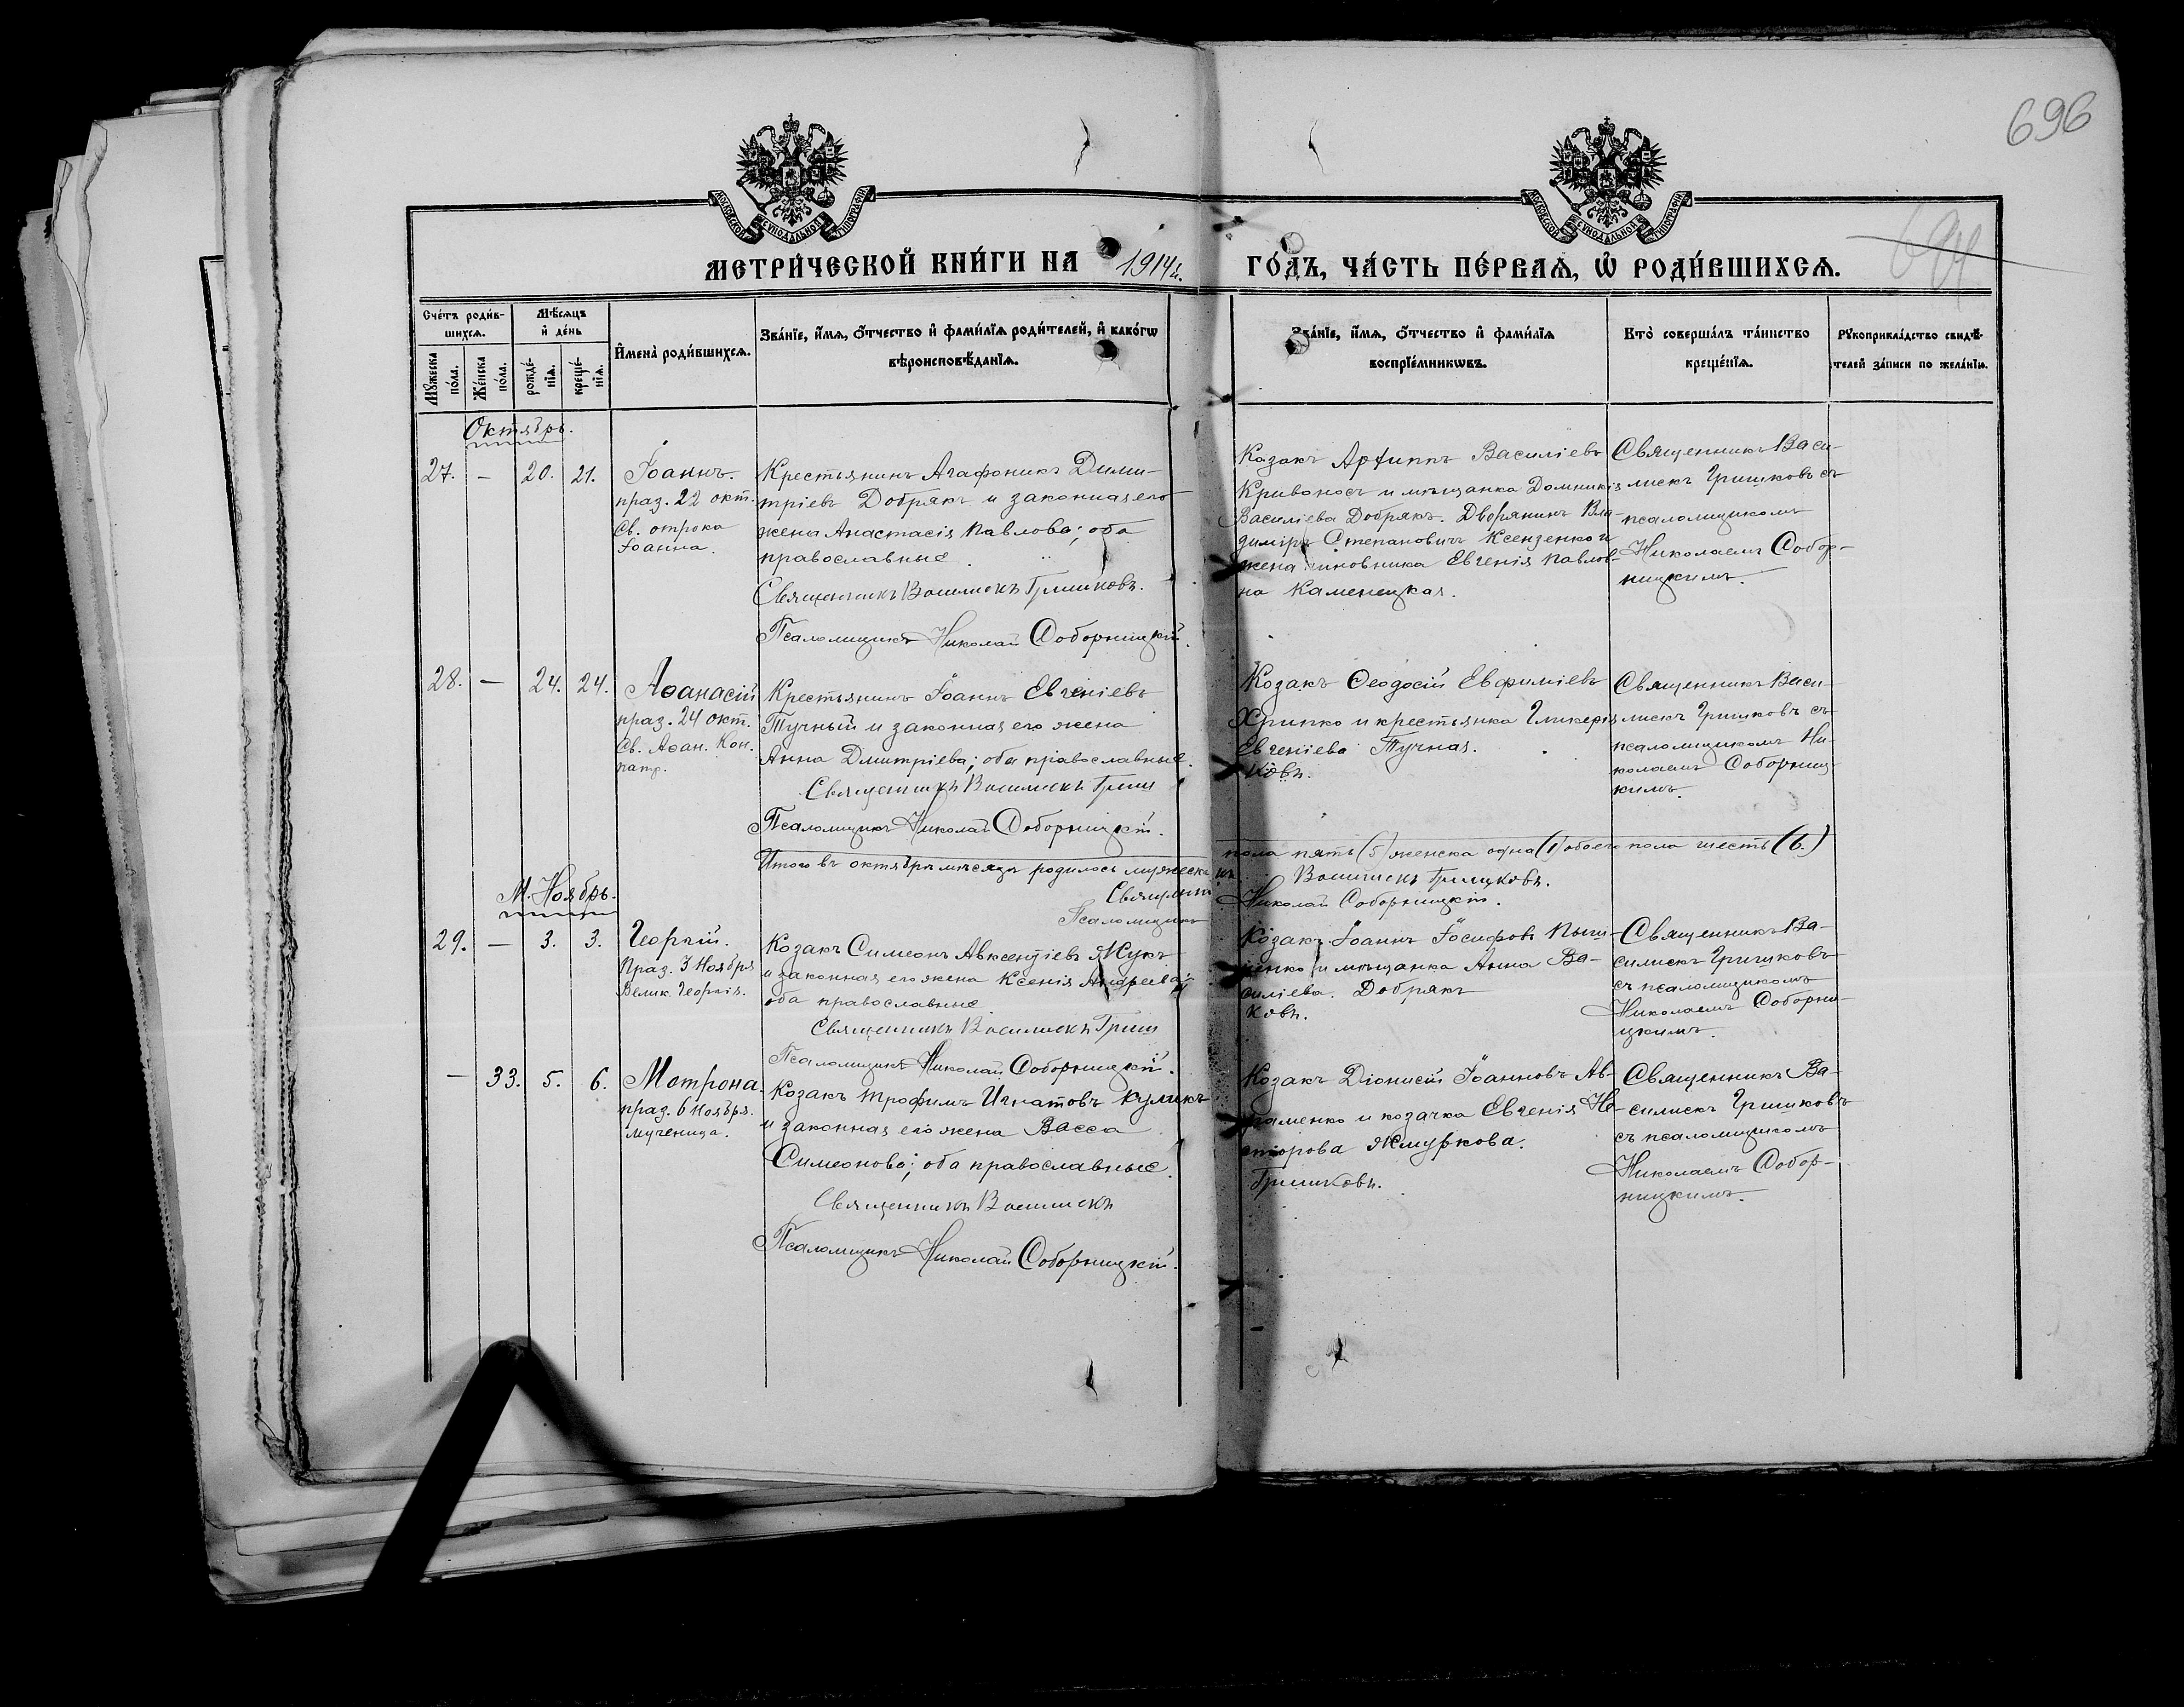 696
694
МОСКОВСКОЙ СѴНОДАЛЬНОЙ ТИПОГРАФІИ
МОСКОВСКОЙ СѴНОДАЛЬНОЙ ТИПОГРАФІИ
МЕТРИ́ЧЕСКОЙ КНИ́ГИ НА 1914 г. ГО́ДЪ, ЧА́СТЬ ПЕ́РВАѦ, Ѽ РОДИ́ВШИХСѦ.
Сче́тъ роди́в-
шихсѧ.
Мѣ́сѧцъ
и҆ де́нь
Мꙋ́жеска
по́ла.
Же́нска
по́ла.
рожде́-
нїѧ.
креще́-
нїѧ.
И҆мена̀ роди́вшихсѧ.
Зва́нїе, и҆́мѧ, ѻ҆́тчество и҆ фами́лїѧ роди́телей, и҆ како́гѡ
вѣроисповѣ́данїѧ.
Зва́нїе, и҆́мѧ, ѻ҆́тчество и҆ фами́лїѧ
воспрїе́мникѡвъ.
Кто̀ соверша́лъ та́инство
креще́нїѧ.
Рꙋкоприкла́дство свидѣ́-
телей за́писи по жела́нїю.
Октябрь.
27. — 20. 21.
Іоаннъ.
праз. 22 окт.
Св. отрока
Іоанна.
Крестьянинъ Агафоникъ Дими-
тріевъ Добрякъ и законная его
жена Анастасія Павлова; оба
православные.
Священникъ Василискъ Гришковъ.
Псаломщикъ Николай Соборницкій.
Козакъ Архиппъ Василіевъ
Кривоносъ и мѣщанка Домникія
Василіева Добрякъ. Дворянинъ Вла-
димiръ Степановичъ Ксензенко и
жена чиновника Евгенія Павлов-
на Каменецкая.
Священникъ Васи-
лискъ Гришковъ съ
псаломщикомъ
Николаемъ Собор-
ницкимъ.
28. — 24. 24.
Аѳанасій
праз. 24 окт.
Св. Аѳан. Кон.
патр.
Крестьянинъ Іоаннъ Евгеніевъ
Тучный и законная его жена
Анна Дмитріева; оба православные.
Священникъ Василискъ Гриш
Псаломщикъ Николай Соборницкій.
Козакъ Ѳеодосій Евфиміевъ
Хрипко и крестьянка Гликерія
Евгеніева Тучная.
ковъ.
Священникъ Васи-
лискъ Гришковъ съ
псаломщикомъ Ни-
колаемъ Соборниц-
кимъ.
Итого въ октябрѣ мѣсяцѣ родилось мужеска пола пять (5) женска одна (1) обоего пола шесть (6.)
Священникъ Василискъ Гришковъ.
Псаломщикъ Николай Соборницкій.
М. Ноябрь.
29. — 3. 3.
Георгій.
Праз. 3 Ноября
Велик. Георгія.
Козакъ Симеонъ Авксентіевъ Жукъ
и законная его жена Ксенія Андреева;
оба православные.
Священникъ Василискъ Гриш
Псаломщикъ Николай Соборницкій.
Козакъ Іоаннъ Іосифовъ
и мѣщанка Анна Ва-
силіева Добрякъ
ковъ.
Священникъ Ва-
силискъ Гришковъ
съ псаломщикомъ
Николаемъ Соборни-
цкимъ.
— 33. 5. 6.
Мотрона.
праз. 6 Ноября.
Мученица.
Козакъ Трофимъ Игнатовъ Куликъ
и законная его жена Васса
Симеонова; оба православные.
Священникъ Василискъ
Псаломщикъ Николай Соборницкій.
Козакъ Діонисій Іоанновъ Ав-
раменко и козачка Евгенія Не-
сторова Жмуркова.
Гришковъ.
Священникъ Ва-
силискъ Гришковъ
съ псаломщикомъ
Николаемъ Собор-
ницкимъ.